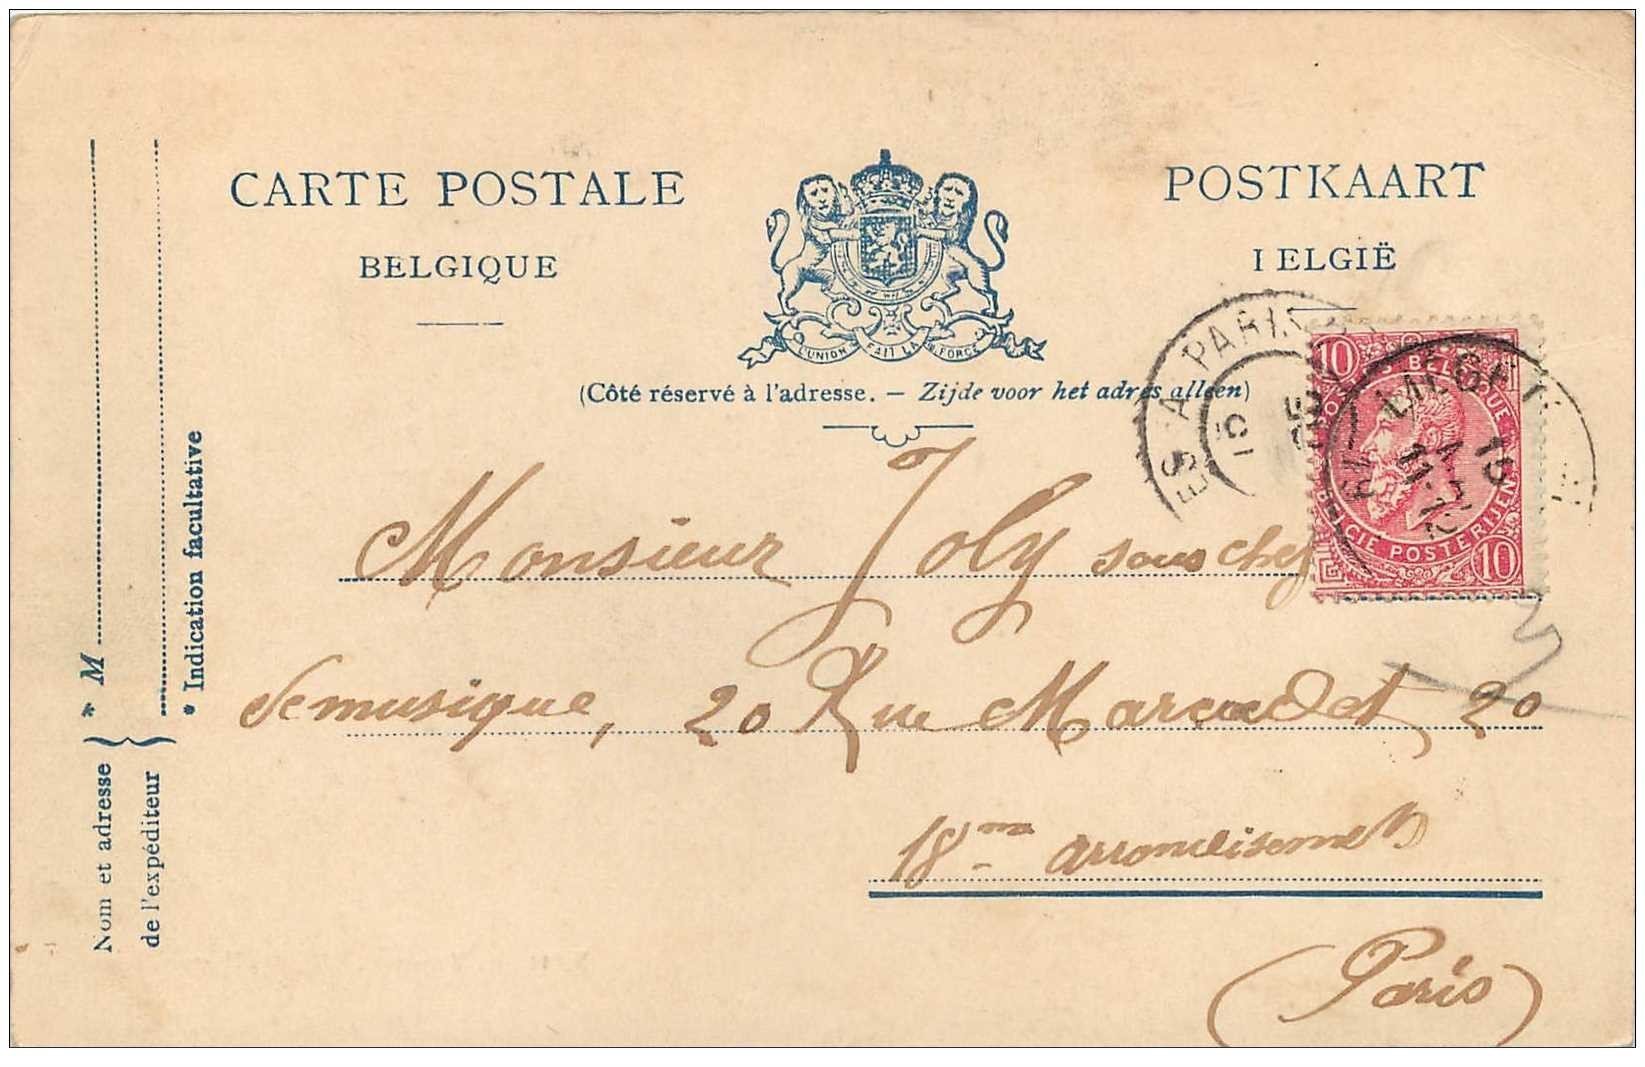 CARTE POSTALE
BELGIQUE
POSTKAART
I ELGIË
L'UNION FAIT LA FORCE
(Côté réservé à l'adresse. — Zijde voor het adres alleen)
A PARIS
15
10 BELGIQUE
POSTERIJEN 10
Monsieur Joly sous chef
de musique, 20 Rue Marcadet 20
18me arrondisement
(Paris)
* M
* Indication facultative
Nom et adresse
de l'expéditeur